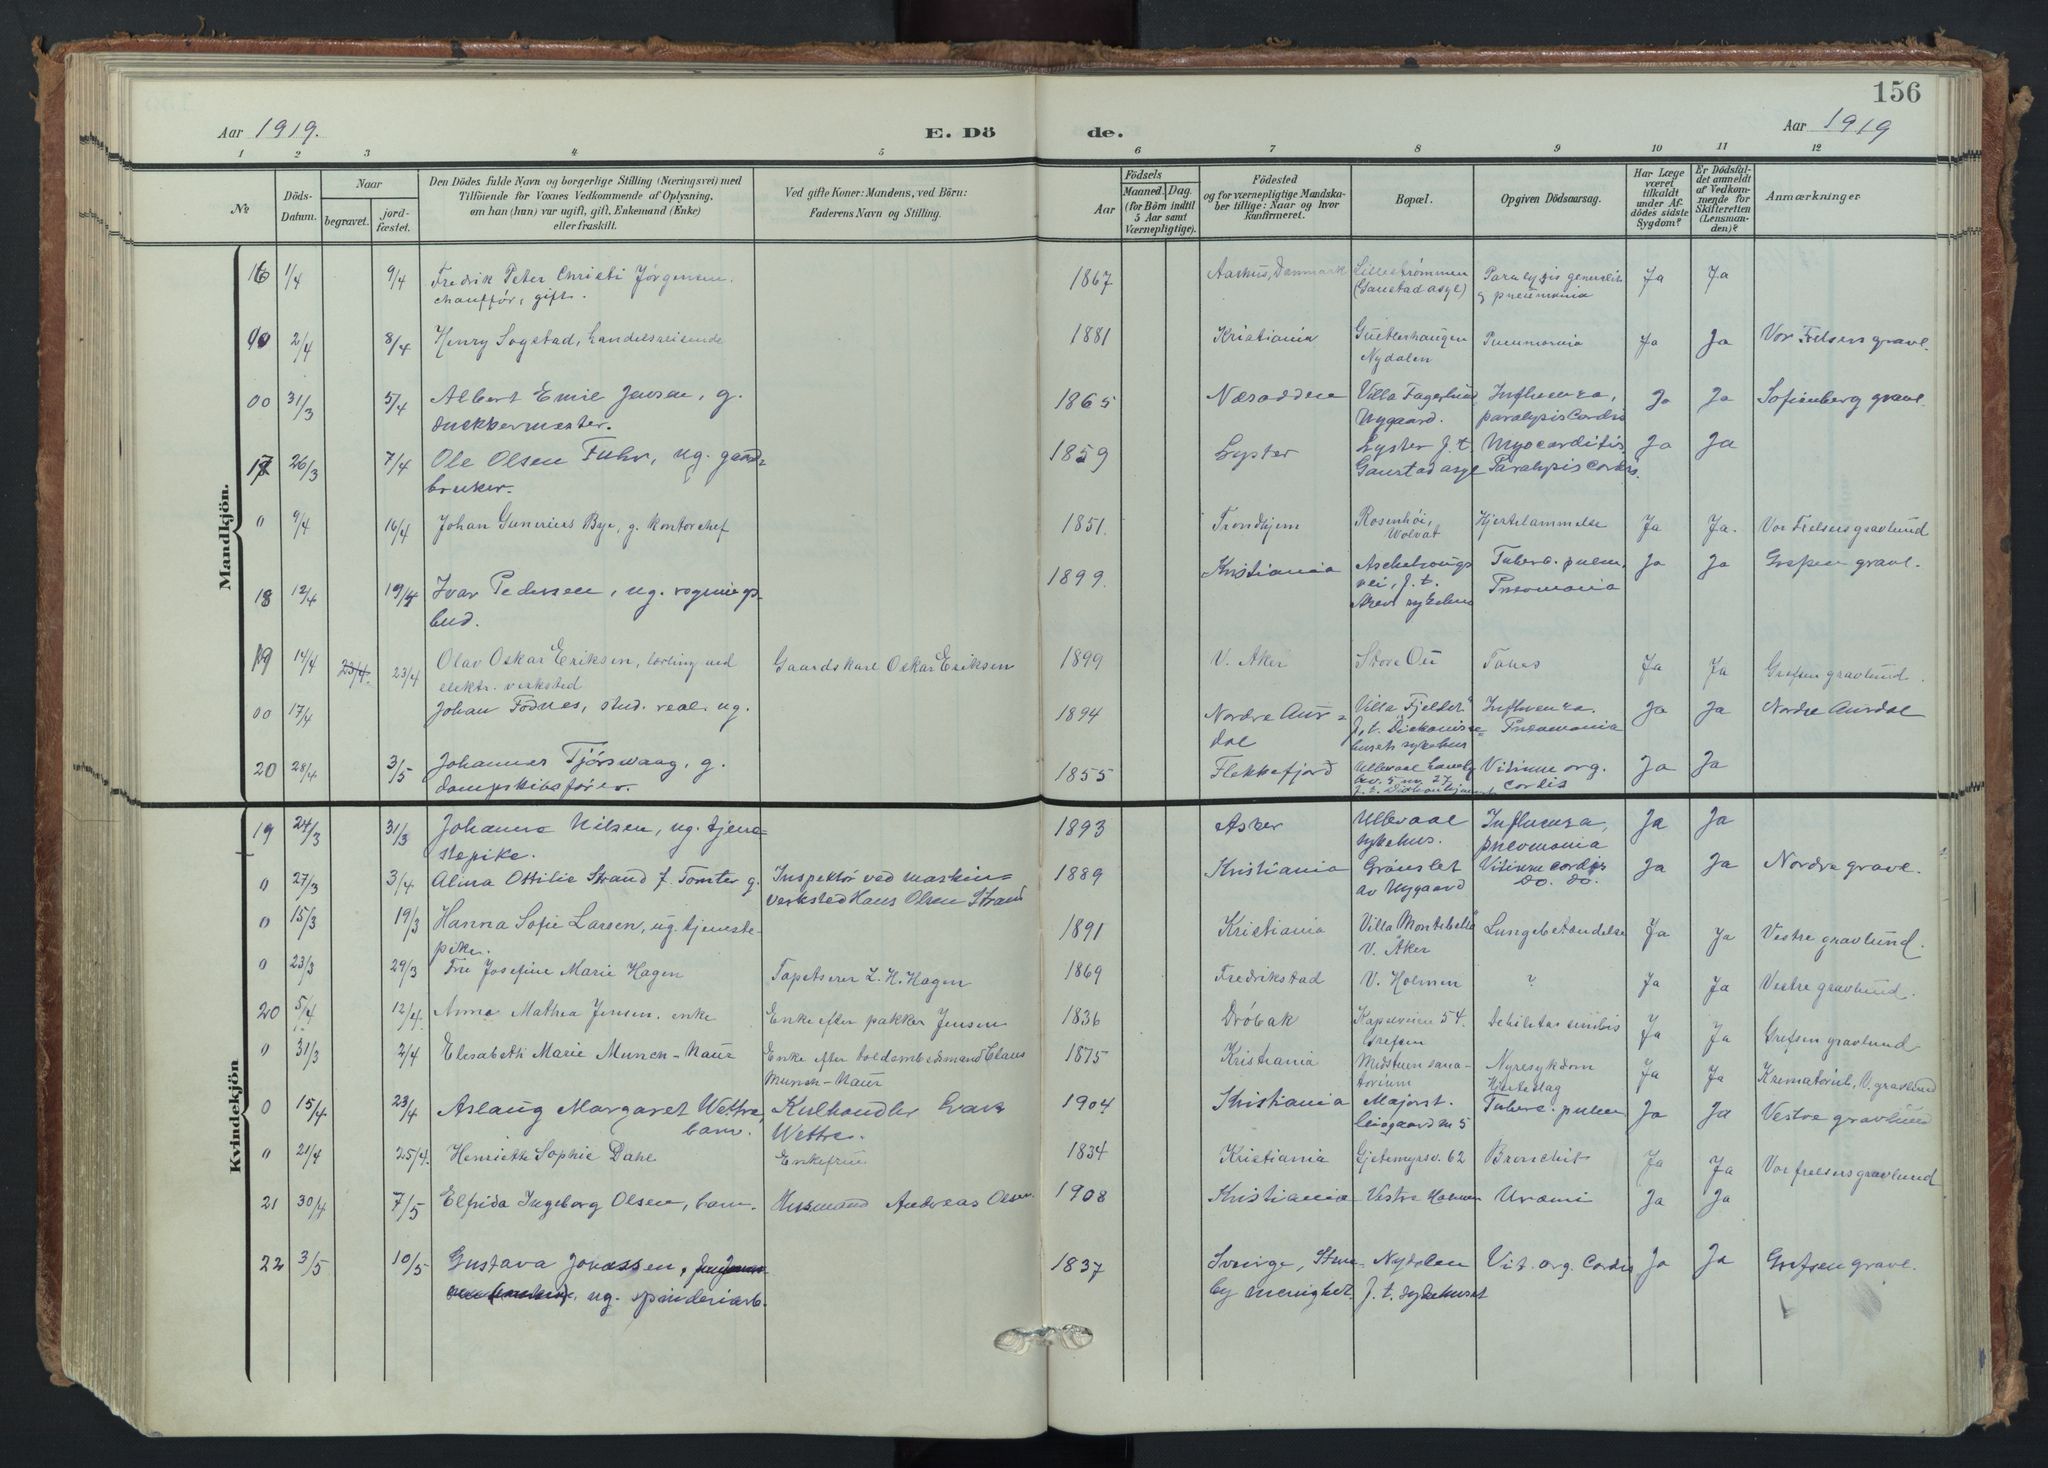 156
Aar 1919. E. Dö de. Aar 1919
1 2 3 4 5 6 7 8 9 10 11 12
№ Döds-Datum. Naar begravet. jord-fæstet. Den Dödes fulde Navn og borgerlige Stilling (Næringsvei) med Tilföiende for Voxnes Vedkommende af Oplysning, om han (hun) var ugift, gift, Enkemand (Enke) eller fraskilt. Ved gifte Koner: Mandens, ved Börn: Faderens Navn og Stilling. Födsels Aar Maaned. Dag. (for Börn indtil 5 Aar samt Værnepligtige). Födested og for værnepligtige Mandskaber tillige: Naar og hvor konfirmeret. Bopæl. Opgiven Dödsaarsag. Har Læge været tilkaldt under Afdödes sidste Sygdom? Er Dödsfaldet anmeldt af Vedkommende for Skifteretten (Lensmanden)? Anmærkninger
Mandkjön.
16 1/4 9/4 Fredrik Peter Christi Jörgensen, 1867 Aarhus, Danmark Lillestrømmen Paralysis generalis Ja Ja
chauffør, gift. (Gaustad asyl) & pneumonia
00 2/4 8/4 Henry Sogstad, handelsreisende 1881 Kristiania Nydalen Pneumonia Ja Ja Vor Frelsers gravl.
00 31/3 5/4 Albert Emil Jensen, g. 1865 Næsodden Villa Fagerlund Influenza, Ja Ja Sofienberg gravl.
snekkermester. Nygaard. paralysis Cordis
17 26/3 7/4 Ole Olsen Fuhr, ug. gaard- 1859 Lyster Lyster f. t. Myocarditis, Ja Ja
bruker. Gaustad asyl Paralysis Cordis.
0 9/4 16/4 Johan Gunerius Bye, g. kontorchef 1851. Trondhjem Rosenhöi, Hjertelammelse Ja Ja. Vor Frelsers gravlund
Volvat
18 12/4 19/4 Ivar Pedersen, ug. 1899. Kristiania vei, f. t. Tuberc. pulm, Ja Ja Grefsen gravl.
bud. Aker sykehus Pneomonia
19 14/4 23/4. 23/4 Olav Oskar Eriksen, lærling ved Gaardskarl Oskar Eriksen 1899 V. Aker Store Ou Tabes Ja Ja Grefsen gravlund.
elektr. verksted
00 17/4 Johan Fodnes, stud. real. ug. 1894 Nordre Aur- Villa "Fjeldet" Influenza. Ja Ja Nordre Aurdal
dal f. t. Diakonisse- Pneomonia
husets sykehus
20 28/4 3/5 Johannes Tjörswaag, g. 1855 Flekkefjord Ullevaal Vitium org. Ja Ja
dampskibsförer. cordis
Kvindekjön
19 24/3 31/3 Johanna Nilsen, ug. tjene- 1893 Asker Ullevaal Influensa, Ja Ja
stepike. sykehus. pneomonia
0 27/3 3/4 Alma Ottilie Strand f. Tomter g. Inspektör ved maskin- 1889 Kristiania Grönslet Vitium cordis Ja Ja Nordre gravl.
verksted Hans Olsen Strand av Nygaard Do. do.
0 15/3 19/3 Hanna Sofie Larsen, ug. tjeneste- 1891 Kristiania Villa Montebello" Lungebetændelse Ja Ja Vestre gravlund.
pike. V. Aker
0 23/3 29/3 Fru Josefine Marie Hagen Tapetserer L. H. Hagen 1869 Fredrikstad V. Holmen ? Ja Ja Vestre gravlund.
20 5/4 12/4. Anna Mathea Jensen, enke Enke efter pakker Jensen 1836 Dröbak Kapelveien 54. Debilitas senilis Ja Ja Grefsen gravlund
Grefsen
0 31/3 2/4 Elisabeth Marie Munch-Naur Enke efter Claus 1875 Kristiania Midstuen sana- Nyresykdom Ja Ja Krematoriet, V. gravlund
Munch-Naur torium Hjerteslag
0 15/4 23/4 Aslaug Margaret Wettre, Kulhandler 1904 Kristiania Majorst. Tuberc. pulm Ja Ja Vestre gravlund
barn. Wettre. 5
0 21/4 25/4. Henriette Sophie Dahl Enkefrue 1834 Kristiania Gjetemyrsv. 62 Bronchit Ja Ja Vor frelsers gravlund
21 30/4 7/5 Elfrida Ingeborg Olsen, barn. Husmand Andreas Olsen. 1908 Kristiania Vestre Holmen Uræmi Ja Ja
22 3/5 10/5 Gustava Jonassen, 1837 Sverige, Nydalen Vit. org. Cordis Ja Ja Grefsen gravl.
ug. spinderiarb. by menighet. f. t. sykehuset